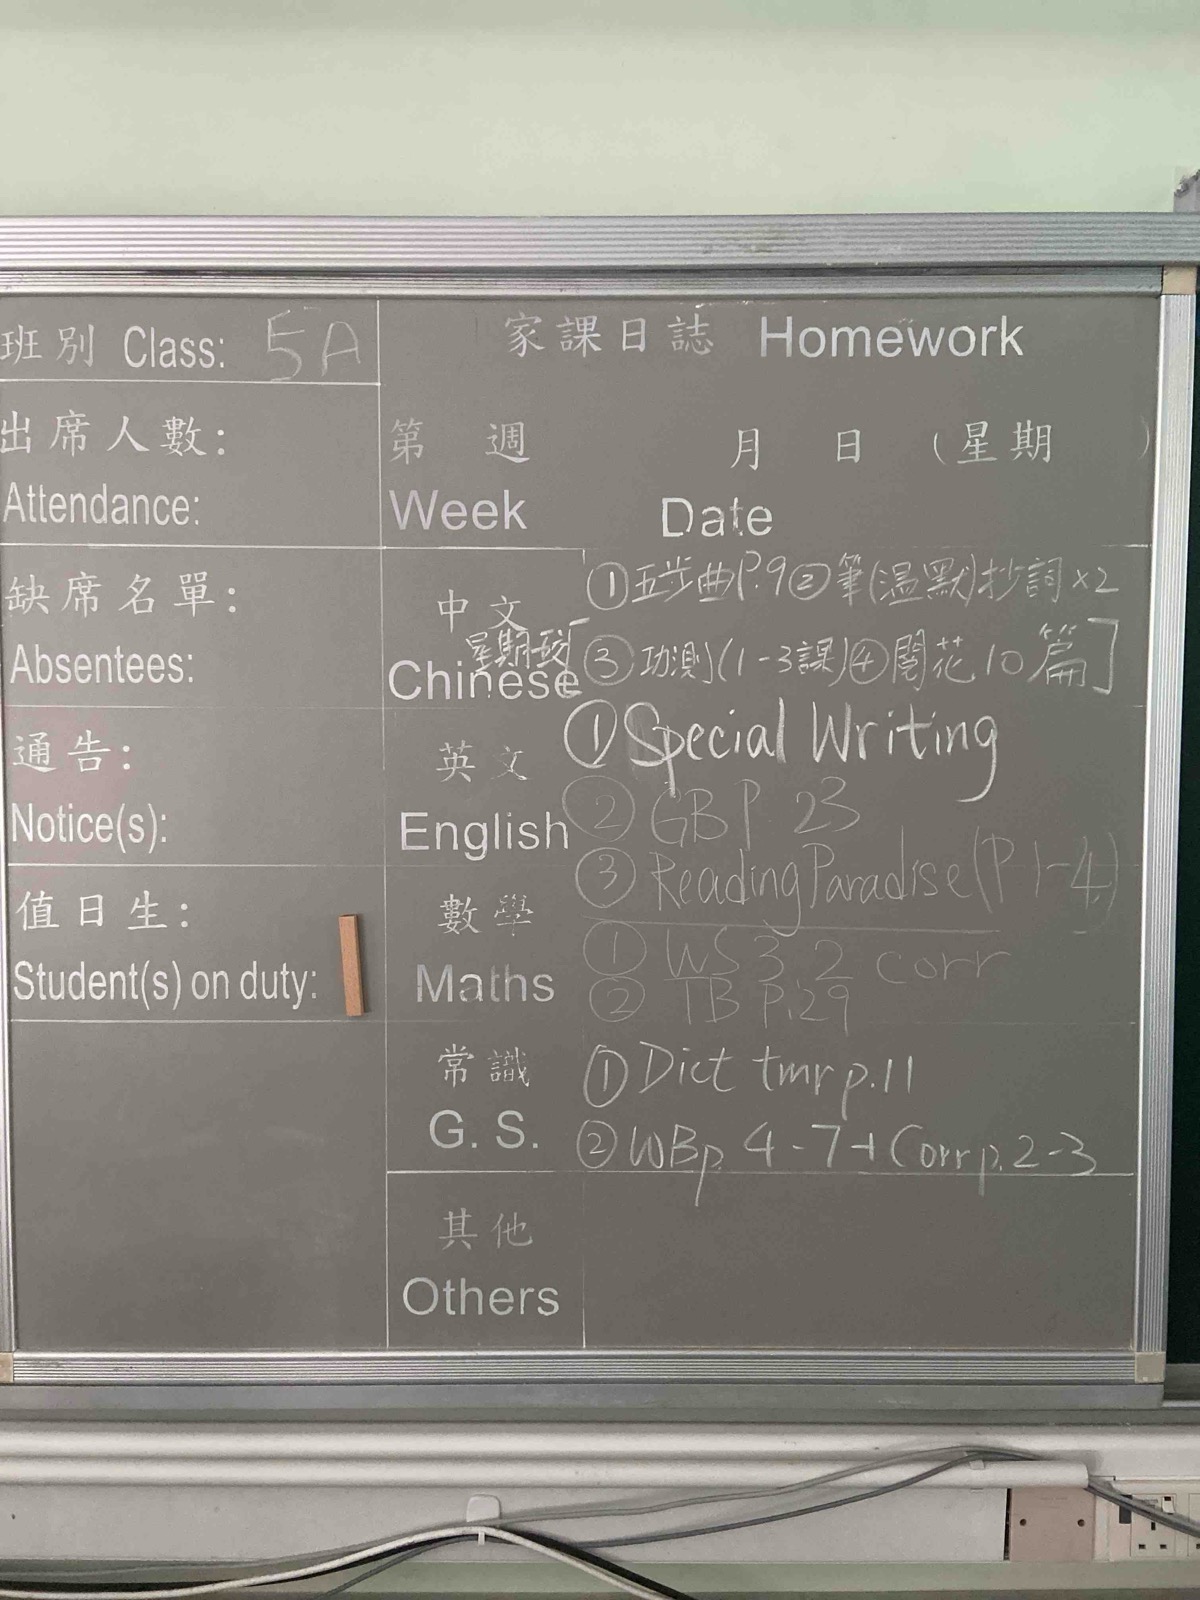 班別 Class: 5A
家課日誌 Homework
出席人數:
Attendance:
第 週 月 日 (星期 )
Week Date
缺席名單:
Absentees:
中文
Chinese
①五步曲P.9②筆(溫默)抄詞×2
星期
③功測(1-3課)④閱花10篇]
通告:
Notice(s):
英文
English
①Special Writing
② GB P 23
③ Reading Paradise (P 1-4)
值日生:
Student(s) on duty:
數學
Maths
① WS 3.2 corr
② TB P.29
常識
G. S.
① Dict tmr p.11
② WBp. 4-7+Corr p.2-3
其他
Others